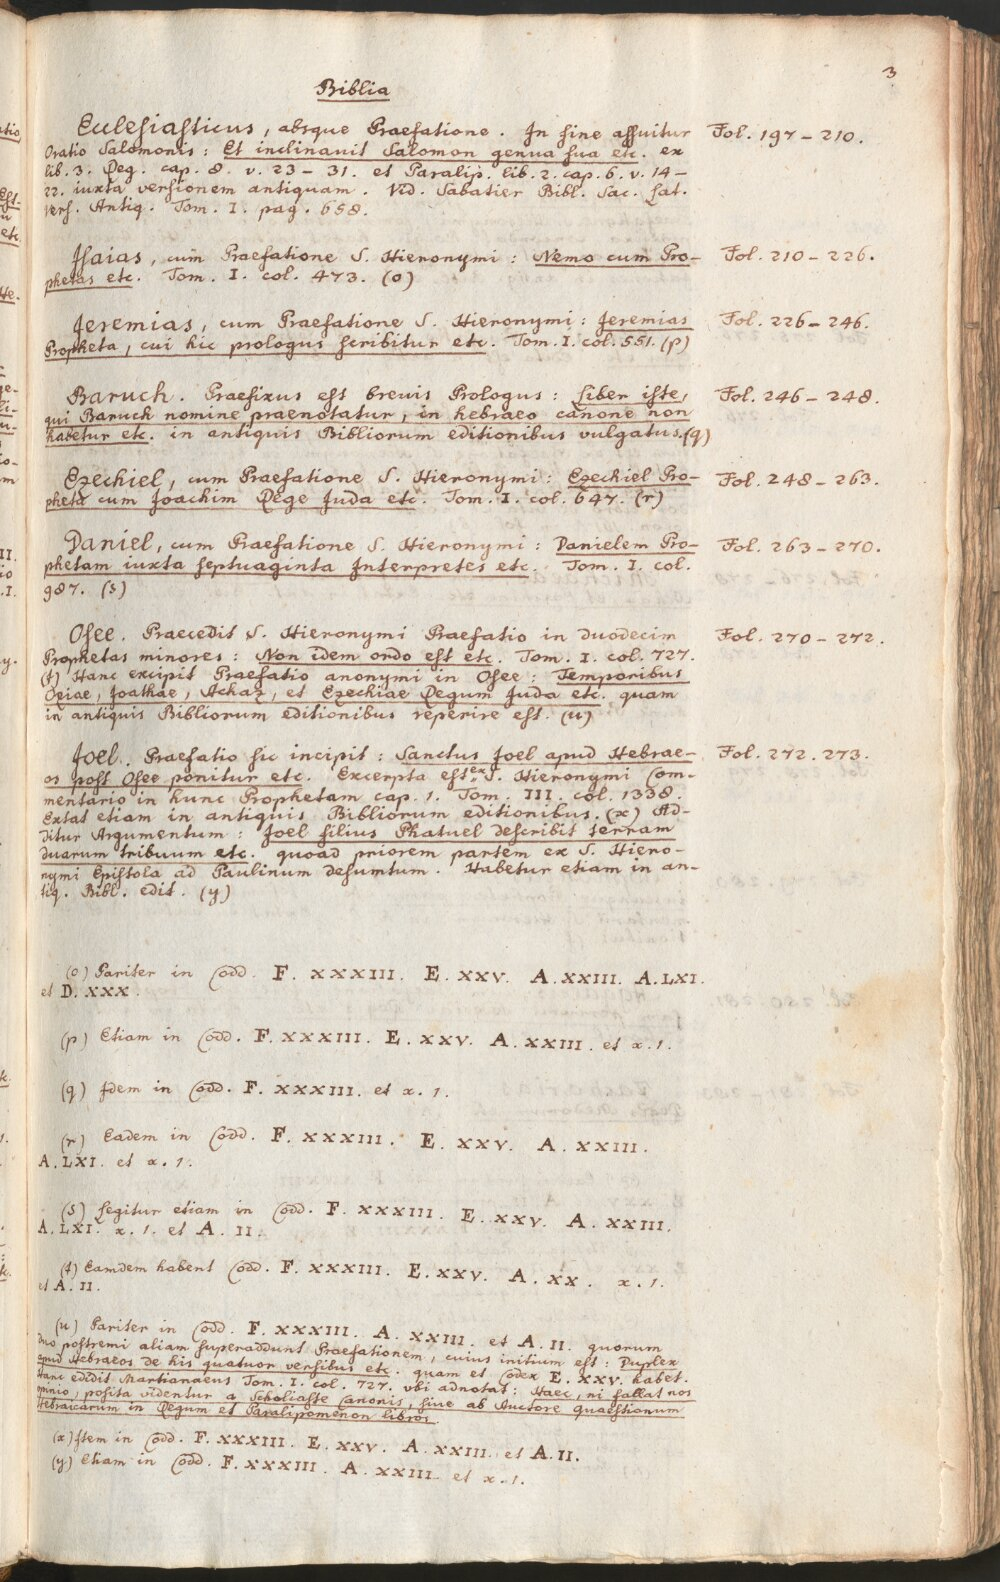 3
Biblia
Ecclesiasticus, absque Praefatione. In fine assuitur Fol. 197–210.
Oratio Salomonis: Et inclinavit Salomon genua sua etc. ex
lib. 3. Reg. cap. 8. v. 23–31. et Paralip. lib. 2. cap. 6. v. 14–
22. iuxta versionem antiquam. Vid. Sabatier Bibl. Sac. Lat.
Vers. Antiq. Tom. I. pag. 658.
Isaias, cum Praefatione S. Hieronymi: Nemo cum Pro- Fol. 210–226.
phetas etc. Tom. I. col. 473. (o)
Jeremias, cum Praefatione S. Hieronymi: Jeremias Fol. 226–246.
Propheta, cui hic prologus scribitur etc. Tom. I. col. 551. (p)
Baruch. Praefixus est brevis Prologus: Liber iste, Fol. 246–248.
qui Baruch nomine praenotatur, in hebraeo canone non
habetur etc. in antiquis Bibliorum editionibus vulgatus. (q)
Ezechiel, cum Praefatione S. Hieronymi: Ezechiel Pro- Fol. 248–263.
pheta cum Joachim Rege Juda etc. Tom. I. col. 647. (r)
Daniel, cum Praefatione S. Hieronymi: Danielem Pro- Fol. 263–270.
phetam iuxta septuaginta Interpretes etc. Tom. I. col.
987. (s)
Osee. Praecedit S. Hieronymi Praefatio in duodecim Fol. 270–272.
Prophetas minores: Non idem ordo est etc. Tom. I. col. 727.
(t) Hanc excipit Praefatio anonymi in Osee: Temporibus
Oziae, Joathae, Achaz, et Ezechiae Regum Juda etc. quam
in antiquis Bibliorum editionibus reperire est. (u)
Joel. Praefatio sic incipit: Sanctus Joel apud Hebrae- Fol. 272. 273.
os post Osee ponitur etc. Excerpta est ex S. Hieronymi Com-
mentario in hunc Prophetam cap. 1. Tom. III. col. 1338.
Extat etiam in antiquis Bibliorum editionibus. (x) Ad-
ditur Argumentum: Joel filius Phatuel describit terram
duarum tribuum etc. quoad priorem partem ex S. Hiero-
nymi Epistola ad Paulinum desumtum. Habetur etiam in an-
tiq. Bibl. edit. (y)
(o) Pariter in Codd. F. XXXIII. E. XXV. A. XXIII. A. LXI.
et D. XXX.
(p) Etiam in Codd. F. XXXIII. E. XXV. A. XXIII. et x. 1.
(q) Idem in Codd. F. XXXIII. et x. 1.
(r) Eadem in Codd. F. XXXIII. E. XXV. A. XXIII.
A. LXI. et x. 1.
(s) Legitur etiam in Codd. F. XXXIII. E. XXV. A. XXIII.
A. LXI. x. 1. et A. II.
(t) Eamdem habent Codd. F. XXXIII. E. XXV. A. XX. x. 1.
et A. II.
(u) Pariter in Codd. F. XXXIII. A. XXIII. et A. II. quorum
duo postremi aliam superaddunt Praefationem, cuius initium est: Duplex
apud Hebraeos de his quatuor versibus etc. quam et Codex E. XXV. habet.
Hanc edidit Martianaeus Tom. I. col. 727. ubi adnotat: Haec, ni fallat nos
omnio, posita videntur a Scholiaste Canonis, sive ab Auctore quaestionum
Hebraicarum in Regum et Paralipomenon libros.
(x) Item in Codd. F. XXXIII. E. XXV. A. XXIII. et A. II.
(y) Etiam in Codd. F. XXXIII. A. XXIII. et x. 1.